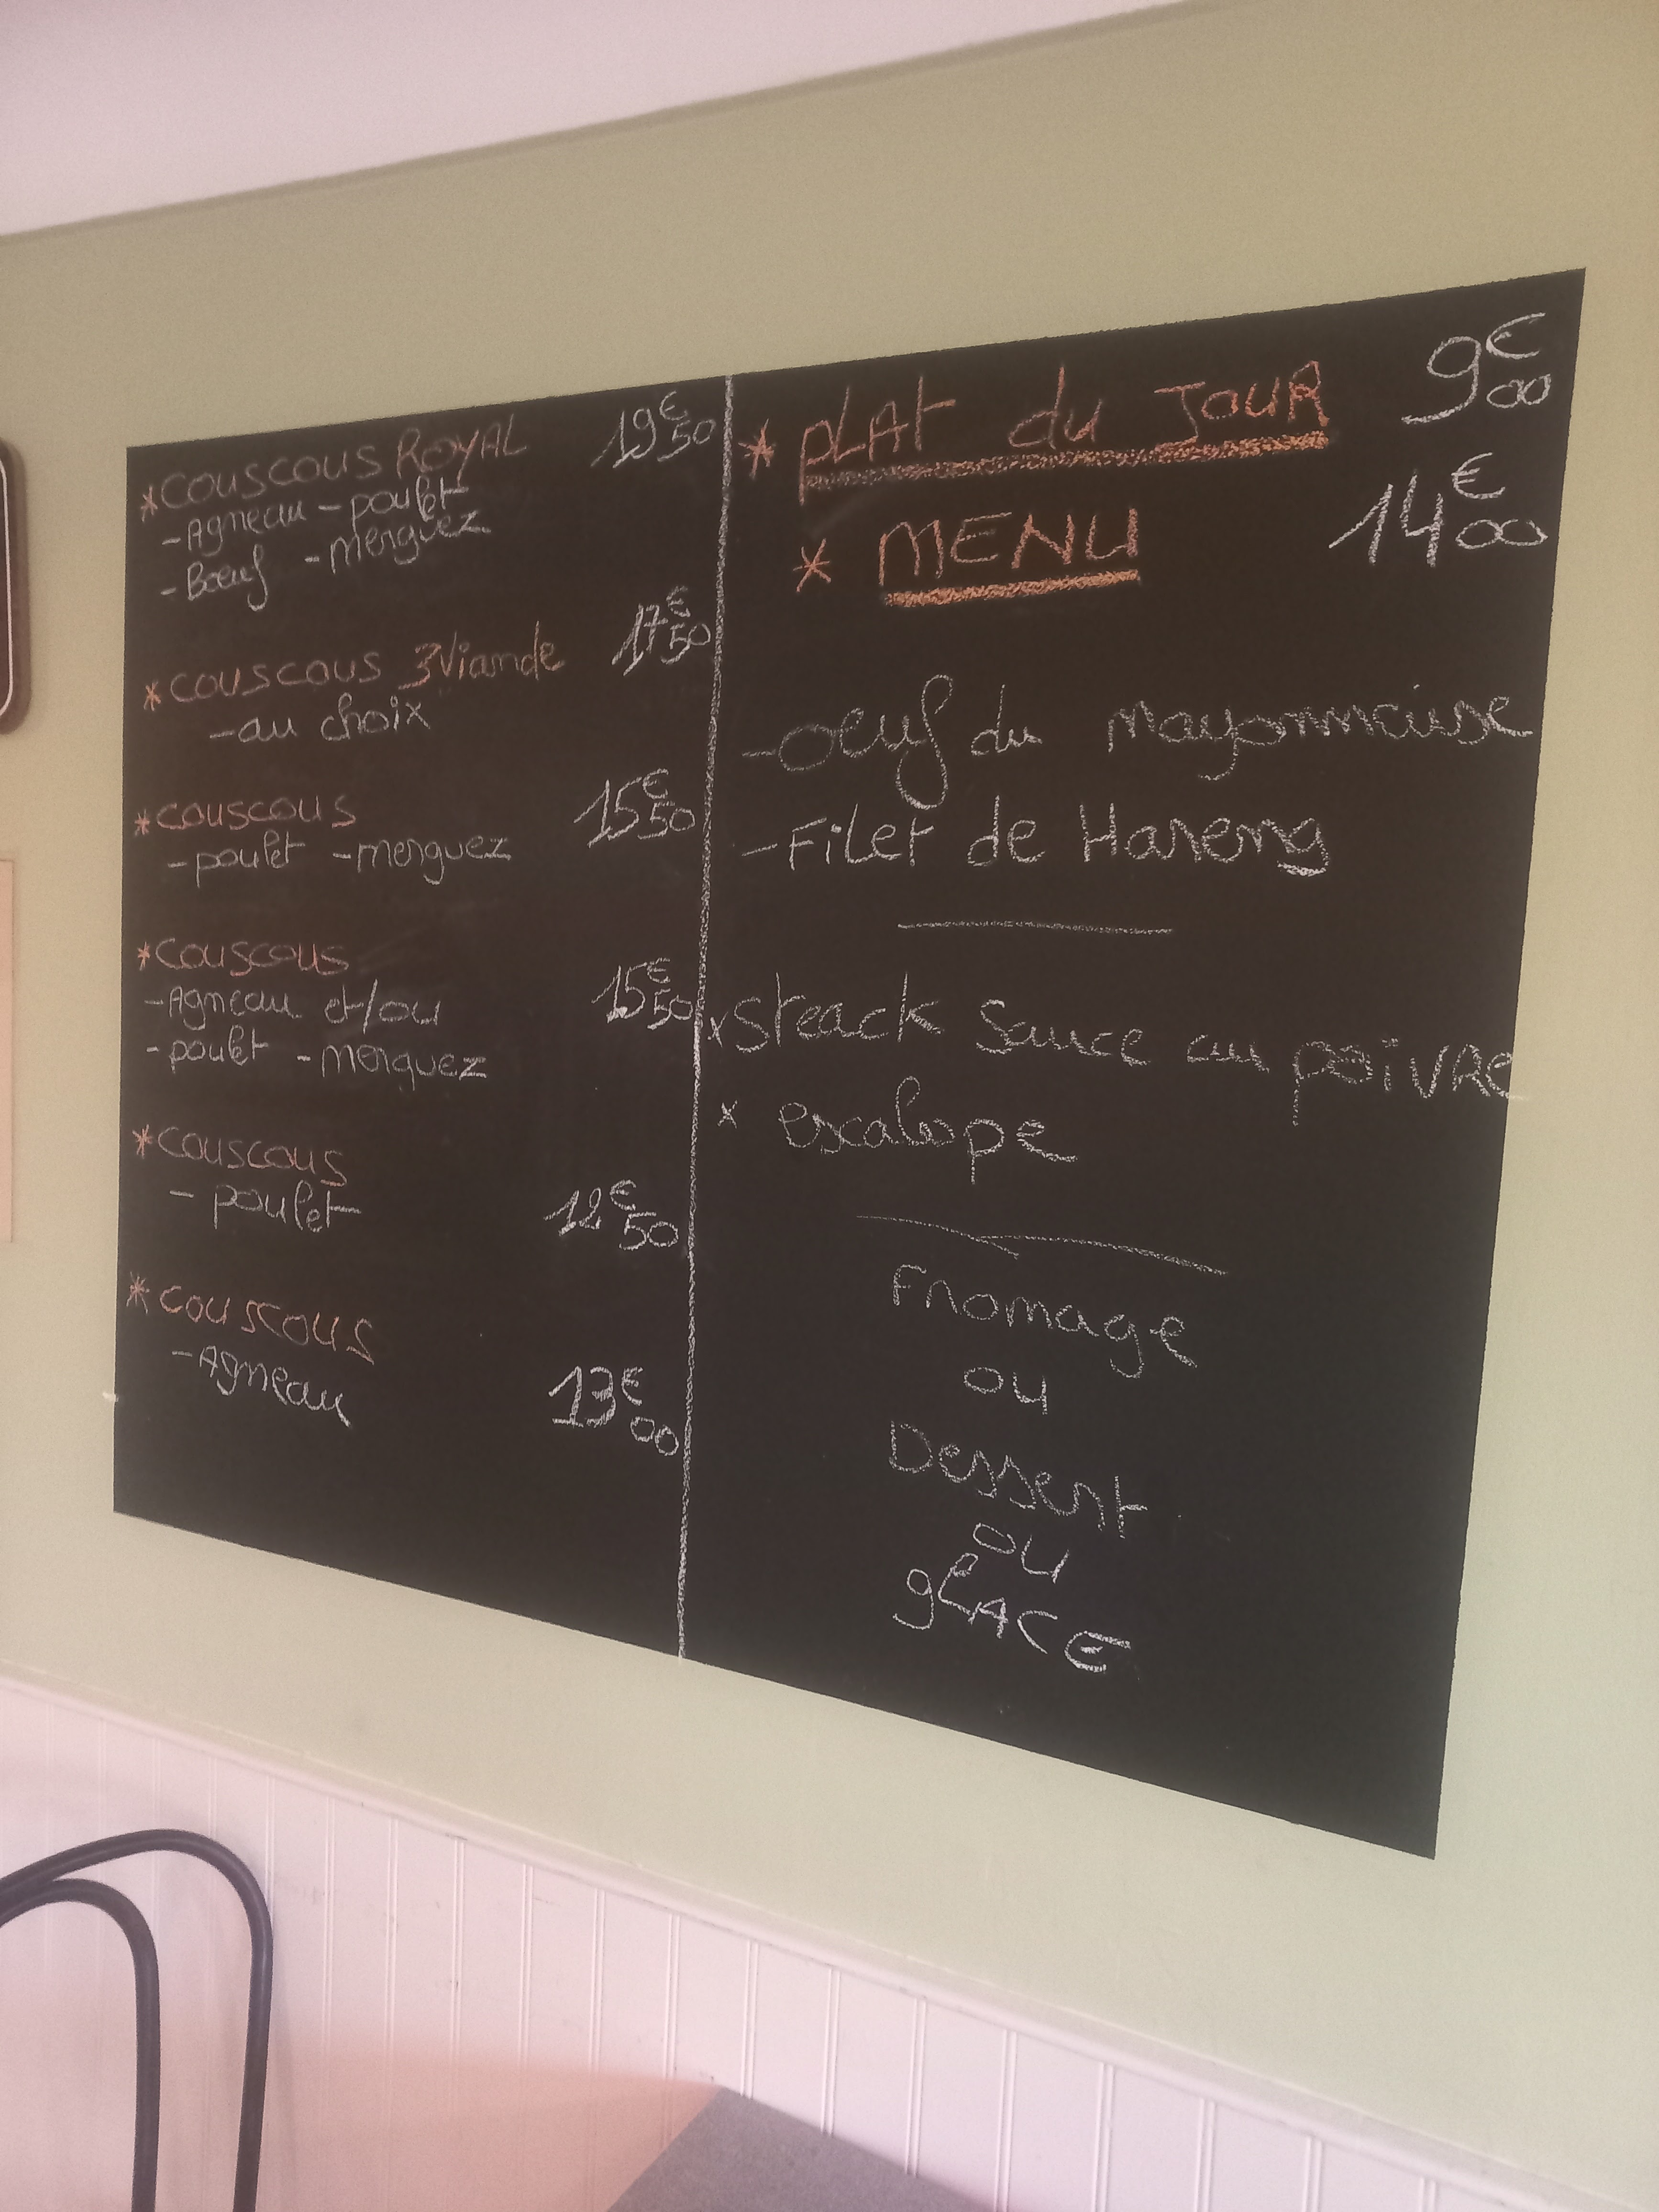 *COUSCOUS ROYAL 19€50
-Agneau -poulet
-Boeuf -merguez
*COUSCOUS 3Viande 17€50
-au choix
*couscous 15€50
-poulet -merguez
*couscous
-Agneau et/ou 15€50
-poulet -merguez
*couscous
- poulet 12€50
*couscous
-Agneau 13€00
* PLAt du JOUR 9€00
* MENU 14€00
-oeuf du mayonnaise
-Filet de Hareng
x steack Sauce au poivre
x escalope
Fromage
ou
Dessert
ou
gLACE